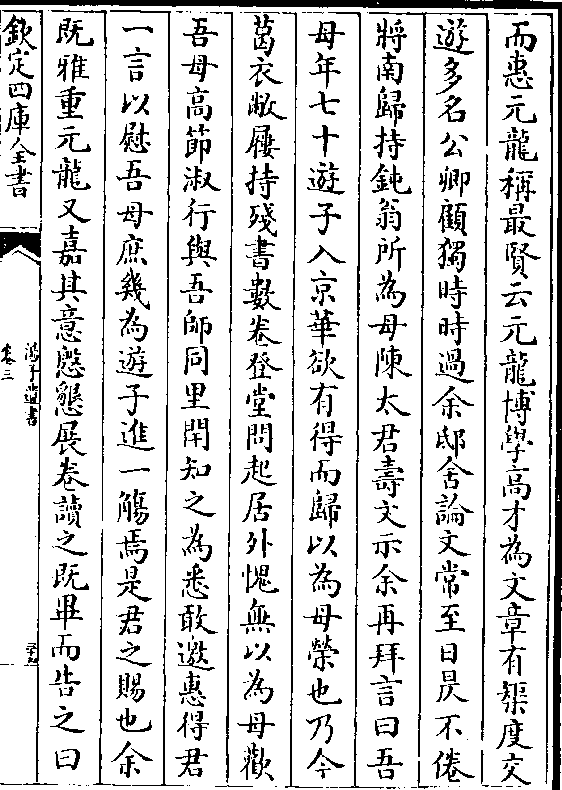 而惠元龍稱最賢云元龍博學高才為文章有榘度交
遊多名公卿顧獨時時過余邸舍論文常至日昃不倦
將南歸持鈍翁所為母陳太君壽文示余再拜言曰吾
母年七十遊子入京華欲有得而歸以為母榮也乃今
葛衣敝屨持殘書數卷登堂問起居外愧無以為母歡
吾母高節淑行與吾師同里閈知之為悉敢邀惠得君
一言以慰吾母庶幾為遊子進一觴焉是君之賜也余
既雅重元龍又嘉其意慇懇展卷讀之既畢而告之曰
欽定四庫全書
湯子遺書
卷三